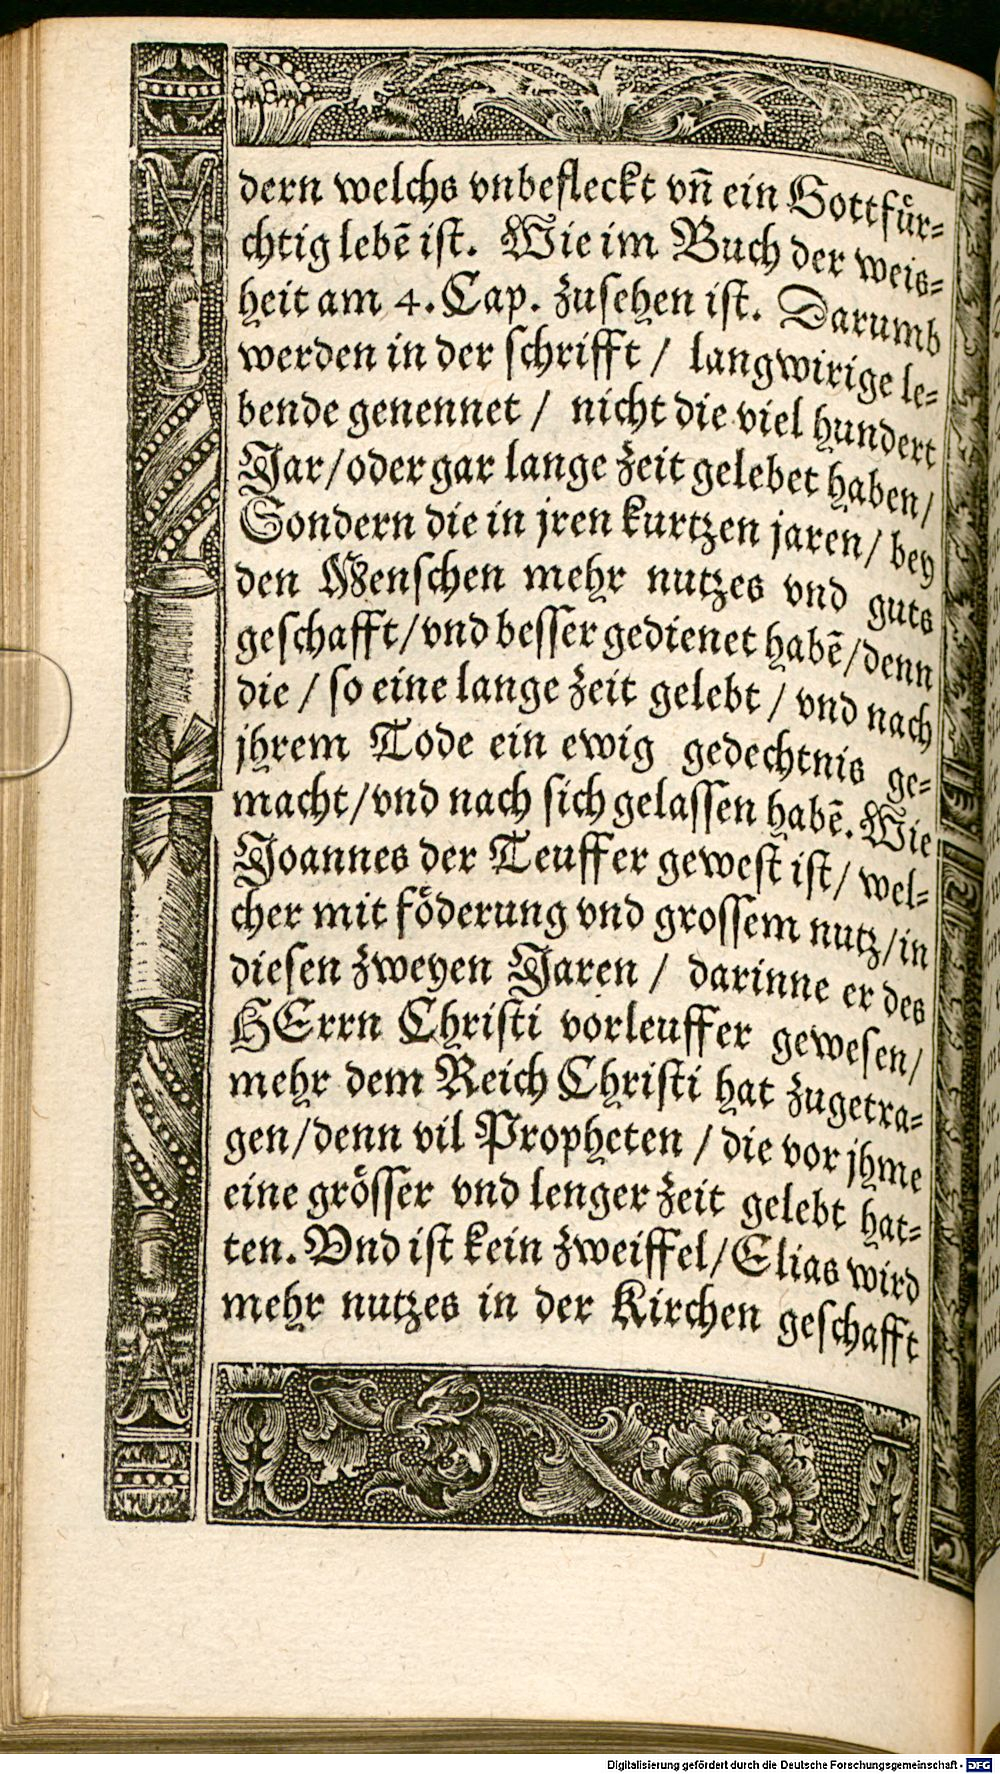 dern welchs vnbefleckt vn̄ ein Gottfuͤr⸗
chtig lebē ist. Wie im Buch der weis⸗
heit am 4. Cap. zusehen ist. Darumb
werden in der schrifft / langwirige le⸗
bende genennet / nicht die viel hundert
Jar/oder gar lange zeit gelebet haben/
Sondern die in jren kurtzen jaren/ bey
den Menschen mehr nutzes vnd guts
geschafft/vnd besser gedienet habē/denn
die / so eine lange zeit gelebt / vnd nach
jhrem Tode ein ewig gedechtnis ge⸗
macht/vnd nach sich gelassen habē. Wie
Joannes der Teuffer gewest ist/ wel⸗
cher mit foͤderung vnd grossem nutz/in
diesen zweyen Jaren / darinne er des
HErrn Christi vorleuffer gewesen/
mehr dem Reich Christi hat zugetra⸗
gen/denn vil Propheten / die vor jhme
eine groͤsser vnd lenger zeit gelebt hat⸗
ten. Vnd ist kein zweiffel/Elias wird
mehr nutzes in der Kirchen geschafft
Digitalisierung gefördert durch die Deutsche Forschungsgemeinschaft - DFG